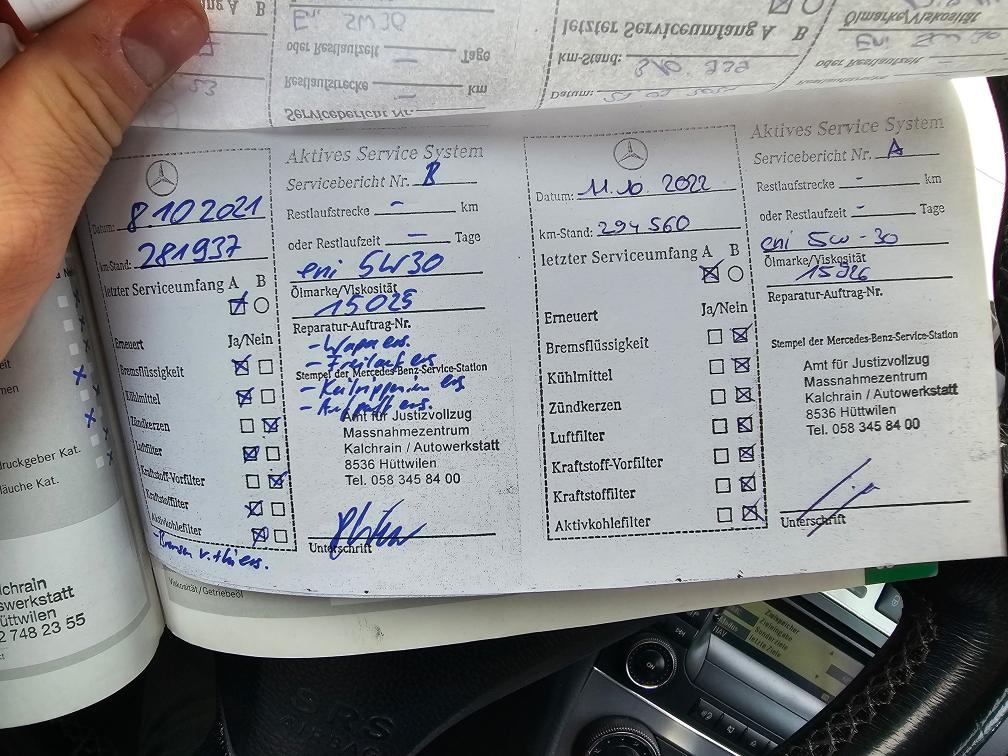 letzter Serviceumfang A B
km-Stand:
Datum:
Ölmarke/Viskosität
oder Restlaufzeit
5W30
oder Restlaufzeit — Tage
Restlaufstrecke — km
Servicebericht Nr.
Datum: 8.10.2021
km-Stand: 281937
letzter Serviceumfang A B
Erneuert Ja/Nein
Bremsflüssigkeit
Kühlmittel
Zündkerzen
Luftfilter
Kraftstoff-Vorfilter
Kraftstoffilter
Aktivkohlefilter
Aktives Service System
Servicebericht Nr. B
Restlaufstrecke - km
oder Restlaufzeit — Tage
eni 5W30
Ölmarke/Viskosität
15025
Reparatur-Auftrag-Nr.
- Wapu ers.
- Freilauf ers.
Stempel der Mercedes-Benz-Service-Station
- Keilrippenriemen ers
Amt für Justizvollzug
Massnahmezentrum
Kalchrain / Autowerkstatt
8536 Hüttwilen
Tel. 058 345 84 00
Unterschrift
Datum: 11.10.2022
km-Stand: 294560
letzter Serviceumfang A B
Erneuert Ja/Nein
Bremsflüssigkeit
Kühlmittel
Zündkerzen
Luftfilter
Kraftstoff-Vorfilter
Kraftstoffilter
Aktivkohlefilter
Aktives Service System
Servicebericht Nr. A
Restlaufstrecke - km
oder Restlaufzeit - Tage
eni 5W-30
Ölmarke/Viskosität
15926
Reparatur-Auftrag-Nr.
Stempel der Mercedes-Benz-Service-Station
Amt für Justizvollzug
Massnahmezentrum
Kalchrain / Autowerkstatt
8536 Hüttwilen
Tel. 058 345 84 00
Unterschrift
druckgeber Kat.
Viskosität/Getriebeöl
2 748 23 55
Zielspeicher
Zieleingabe
Sonderziele
letzte Ziele
NAV
ON
SRS